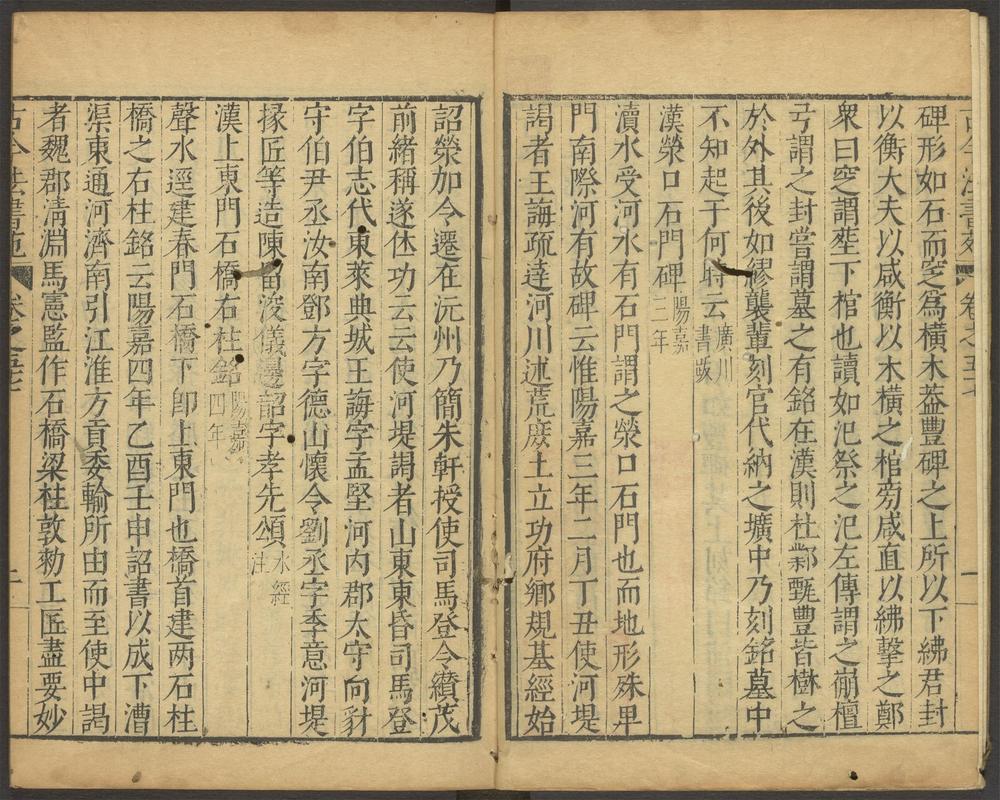 碑形如石而空為橫木葢豐碑之上所以下紼君封
以衡大夫以咸衡以木橫之棺旁咸直以紼擊之鄭
衆曰窆謂塟下棺也讀如氾祭之氾左傳謂之崩檀
弓謂之封嘗謂墓之有銘在漢則杜鄴甄豐皆樹之
於外其後如繆襲輩刻官代納之壙中乃刻銘墓中
不知起于何時云廣川書䟦
漢滎口石門碑陽嘉三年
瀆水受河水有石門謂之滎口石門也而地形殊卑
門南際河有故碑云惟陽嘉三年二月丁丑使河堤
謁者王誨疏達河川述荒庻土立功府鄉規基經始
詔滎加令遷在沅州乃簡朱軒授使司馬登令纘茂
前緒稱遂休功云云使河堤謁者山東東昏司馬登
字伯志代東萊典城王誨字孟堅河內郡太守向豺
守伯尹丞汝南鄧方字德山懷令劉丞字季意河堤
掾匠等造陳留浚儀邊韶字孝先頌水經注
漢上東門石橋右柱銘陽嘉四年
聲水逕建春門石橋下卽上東門也橋首建两石柱
橋之右柱銘云陽嘉四年乙酉壬申詔書以成下漕
渠東通河濟南引江淮方貢委輸所由而至使中謁
者魏郡清淵馬憲監作石橋梁柱敦勑工匠盡要妙